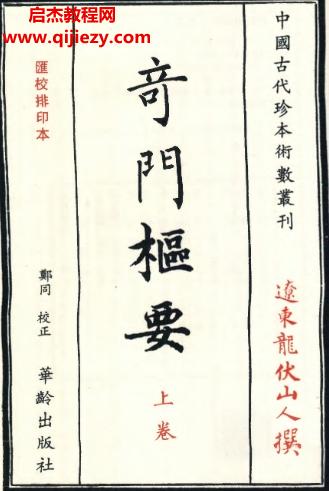 启杰教程网
www.qijiezy.com
中國古代珍本術數叢刊
遼東龍伏山人撰
奇門樞要
上卷
匯校排印本
鄭同 校正 華齡出版社